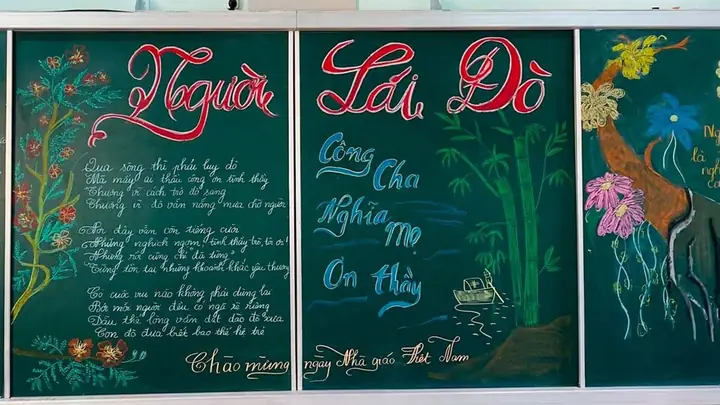 Người Lái Đò
Qua sông thì phải luỵ đò
Mà mấy ai thấu công ơn tình thầy
Thương vì cách trở đò sang
Thương vì đò vẫn nắng mưa chờ người
Nơi đây vẫn còn tiếng cười
Những nghịch ngợm, tình thầy trò, tà ơi!
Nhưng rồi cũng chỉ đã từng
Từng tồn tại những khoảnh khắc yêu thương
Có cuộc vui nào không phải dừng lại
Bởi mỗi người đều có ngã rẽ riêng
Dẫu thế lòng vẫn dắt đảo đò xưa
Con đò đưa biết bao thế hệ trẻ
Công Cha
Nghĩa Mẹ
Ơn thầy
Chào mừng ngày Nhà giáo Việt Nam
là